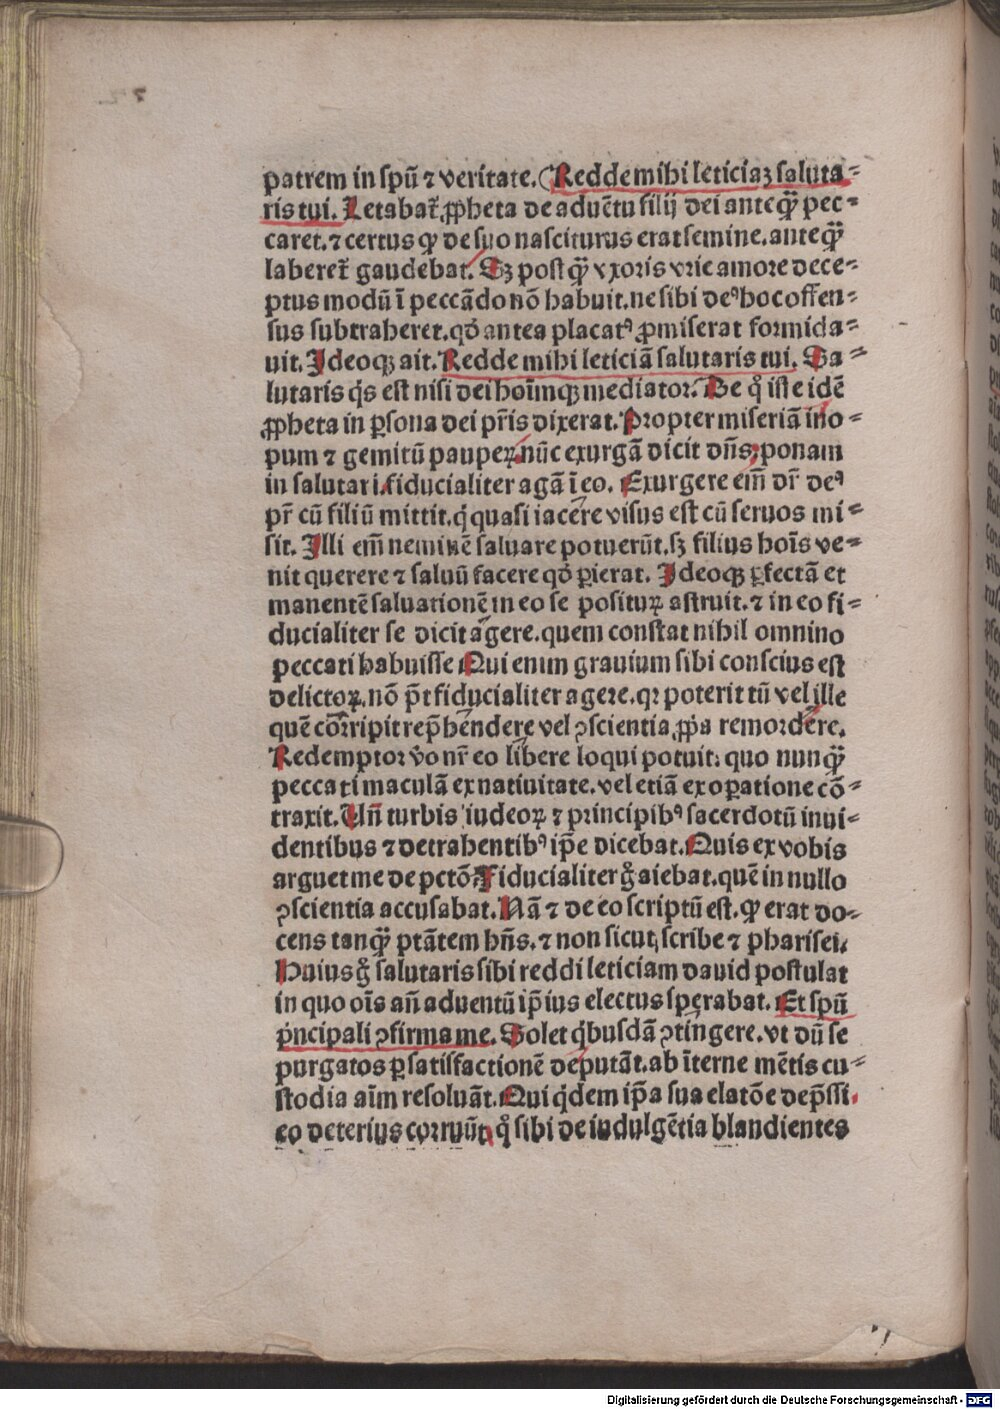 patrem in spũ ⁊ veritate. Redde mihi leticiaꝫ saluta⸗
ris tui. Letabat̃ ꝓpheta de aduẽtu filij dei anteq̃ꝫ pec⸗
caret. ⁊ certus ꝙ de suo nasciturus erat semine. anteq̃ꝫ
laberet̃ gaudebat. Sꝫ postq̃ꝫ vxoris vrie amore dece⸗
ptus modũ ĩ peccãdo nõ habuit. ne sibi deꝰ hoc offen⸗
sus subtraheret. qd̓ antea placatꝰ ꝓmiserat formida⸗
uit. Ideoqꝫ ait. Redde mihi leticiã salutaris tui. Sa⸗
lutaris q̇s est nisi dei hoĩmqꝫ mediator. De q̊ iste idẽ
ꝓpheta in ꝑsona dei pr̃is dixerat. Propter miseriã ino⸗
pum ⁊ gemitũ pauperꝝ. nũc exurgã dicit dñs; ponam
in salutari. fiducialiter agã ĩ eo. Exurgere em̃ dr̃ deꝰ
pr̃ cũ filiũ mittit. q̇ quasi iacere visus est cũ seruos mi⸗
sit. Illi em̃ neminẽ saluare potuerũt. sꝫ filius hoĩs ve⸗
nit querere ⁊ saluũ facere qd̓ ꝑierat. Ideoqꝫ ꝑfectã et
manentẽ saluationẽ in eo se positurꝝ astruit. ⁊ in eo fi⸗
ducialiter se dicit agere. quem constat nihil omnino
peccati habuisse Qui enim grauium sibi conscius est
delictorꝝ. nõ pt̃ fiducialiter agere. qꝛ poterit tũ vel ille
quẽ corripit rep̃hendere vel ꝯscientia ꝓp̃a remordere.
Redemptor v̊o nr̃ eo libere loqui potuit: quo nunq̃ꝫ
peccati maculã ex natiuitate. vel etiã ex oꝑatione cõ⸗
traxit. Uñ turbis iudeorꝝ ⁊ principibꝰ sacerdotũ inui⸗
dentibus ⁊ detrahentibꝰ ip̃e dicebat. Quis ex vobis
arguet me de pctõ? Fiducialiter g̊ aiebat. quẽ in nullo
ꝯscientia accusabat. Nã ⁊ de eo scriptũ est. ꝙ erat do⸗
cens tanq̃ꝫ ptãtem hñs. ⁊ non sicut scribe ⁊ pharisei.
Huius g̊ salutaris sibi reddi leticiam dauid postulat
in quo oĩs añ aduentũ ip̃ius electus sꝑabat. Et spũ
p̍ncipali ꝯfirma me. Solet q̇busdã ꝯtingere. vt dũ se
purgatos ꝑ satisfactionẽ deputãt. ab ĩterne mẽtis cu⸗
stodia aĩm resoluãt. Qui q̇dem ip̃a sua elatõe dep̃ssi.
eo deterius corruũt. q̊ sibi de indulgẽtia blandientes
Digitalisierung gefördert durch die Deutsche Forschungsgemeinschaft - DFG